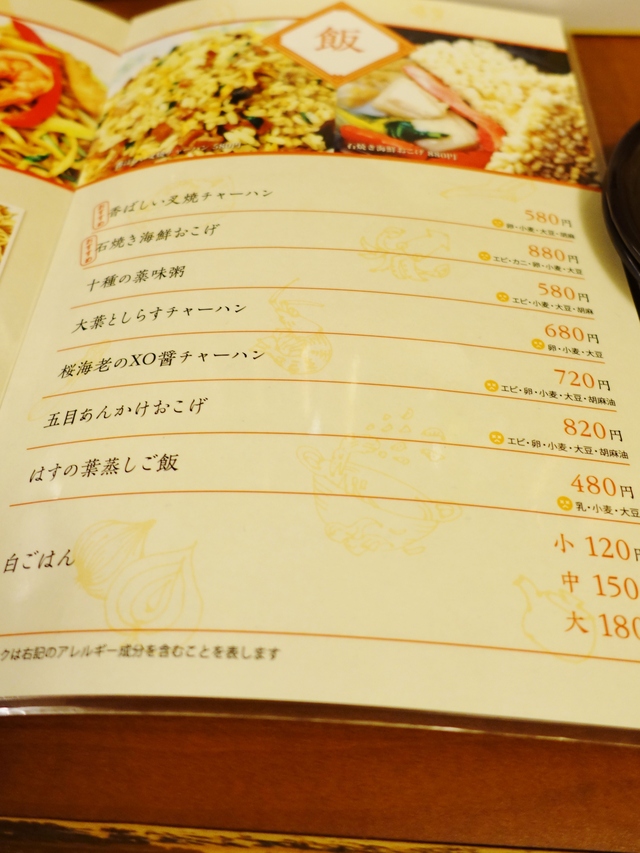 飯
石焼き海鮮おこげ 880円
おすすめ 香ばしい叉焼チャーハン 580円
卵・小麦・大豆・胡麻
おすすめ 石焼き海鮮おこげ 880円
エビ・カニ・卵・小麦・大豆
十種の薬味粥 580円
エビ・小麦・大豆・胡麻
大葉としらすチャーハン 680円
卵・小麦・大豆
桜海老のXO醤チャーハン 720円
エビ・卵・小麦・大豆・胡麻油
五目あんかけおこげ 820円
エビ・卵・小麦・大豆・胡麻油
はすの葉蒸しご飯 480円
乳・小麦・大豆
白ごはん
小 120円
中 150
大 180
クは右記のアレルギー成分を含むことを表します